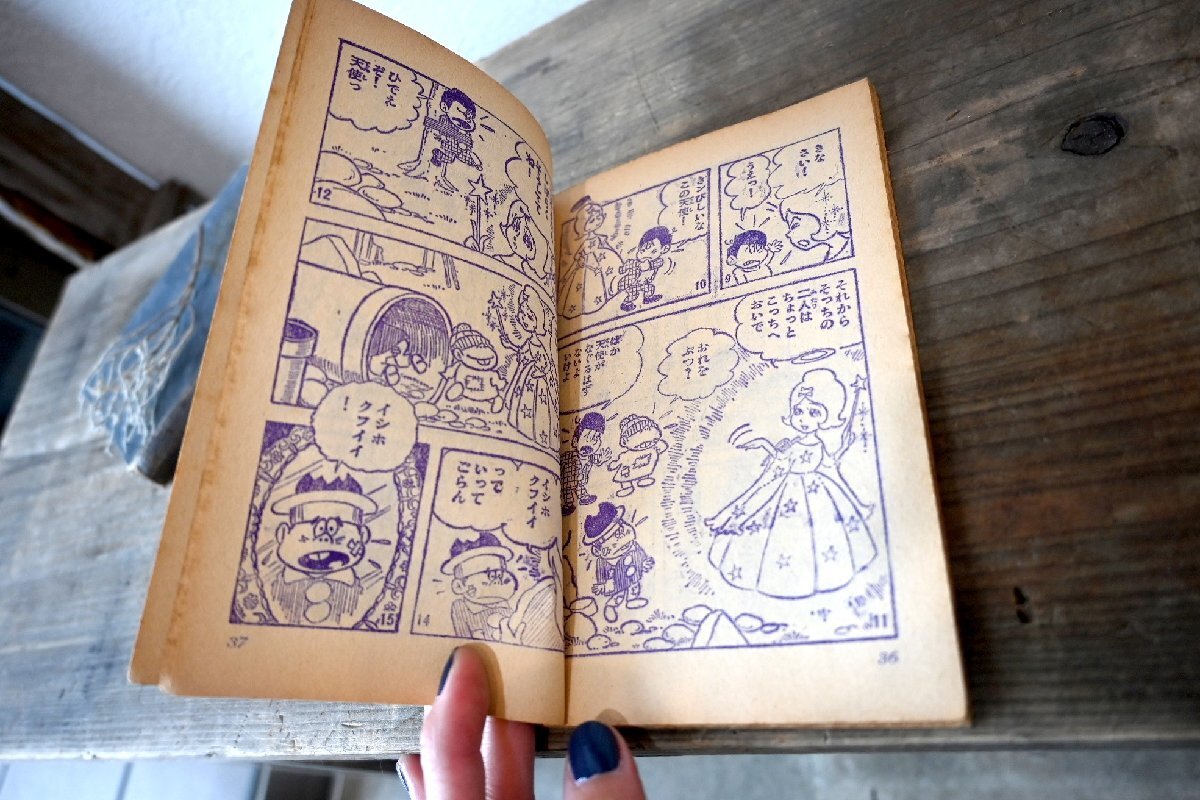 きな
さい!
うえっ!
9
この天使!
10
それから
そっちの
二人は
ちょっと
こっちへ
おいで
おれな
ぶつ?
ばか
天使が
なぐるはず
ないよ
いけよ
11
36
ね!
ひでえ
ぞ!
天使っ
12
イシホ
クフイイ
って
いって
ごらん
14
イシホ
クフイイ
!
15
37